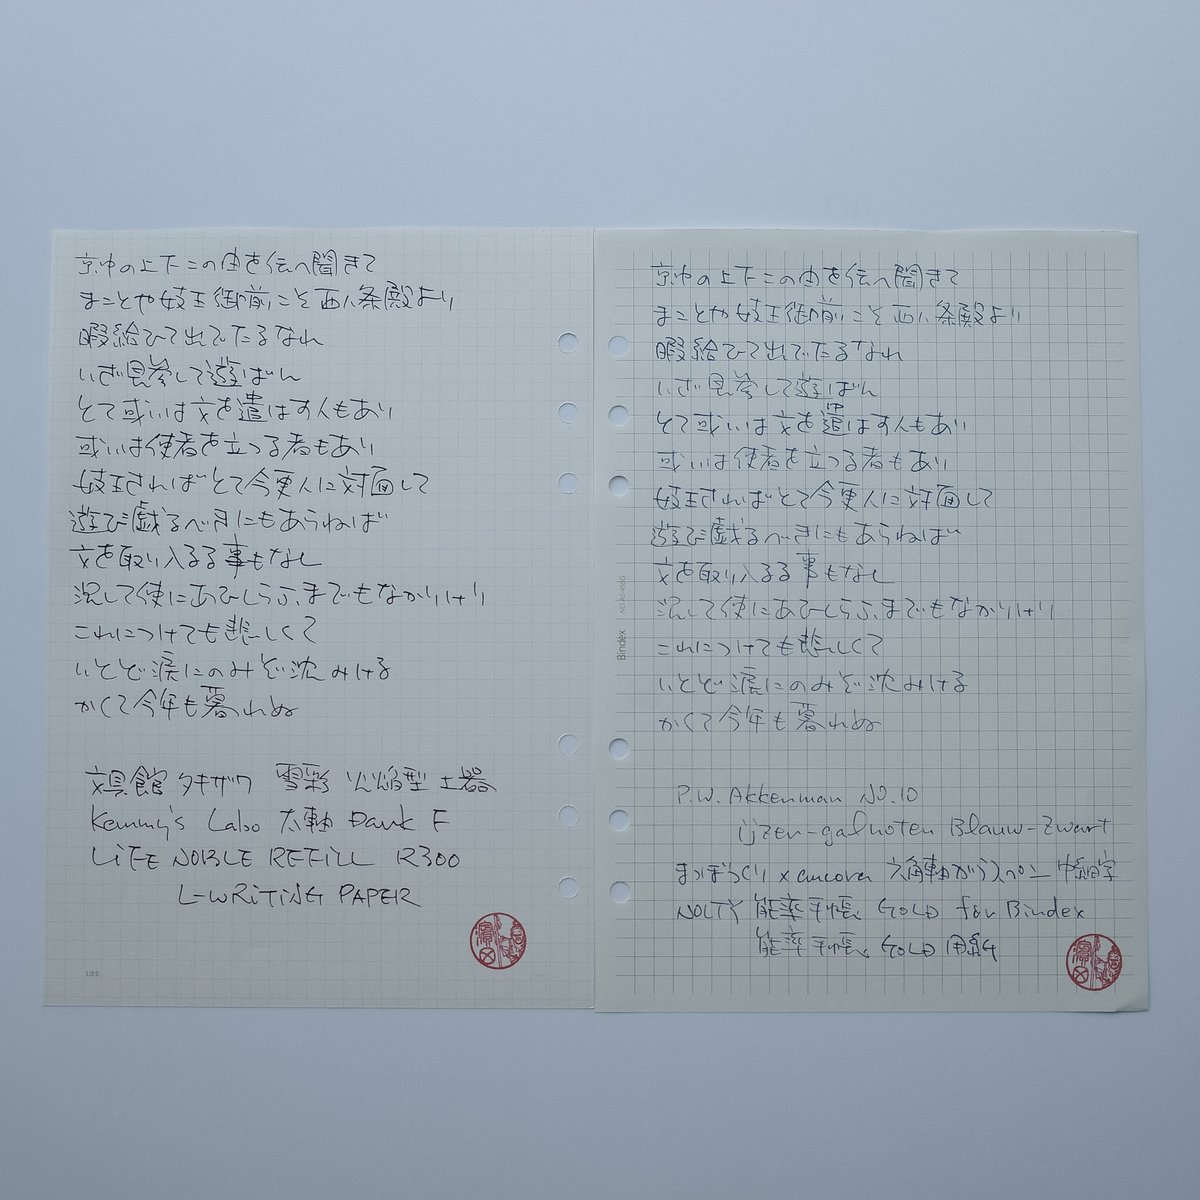 京中の上下この由を伝へ聞きて
まことや妓王御前こそ西八条殿より
暇給ひて出でたるなれ
いざ見参して遊ばん
とて或いは文を遣はす人もあり
或いは使者を立つる者もあり
妓王さればとて今更人に対面して
遊び戯るべきにもあらねば
文を取り入るる事もなし
況して使にあひしらふまでもなかりけり
これにつけても悲しくて
いとど涙にのみぞ沈みける
かくて今年も暮れぬ
文具館タキザワ 雪彩 火焔型土器
Kemmy's Labo 太軸 Dark F
LIFE NOBLE REFILL R300
L-WRITING PAPER
LIFE
京中の上下この由を伝へ聞きて
まことや妓王御前こそ西八条殿より
暇給ひて出でたるなれ
いざ見参して遊ばん
とて或いは文を遣はす人もあり
或いは使者を立つる者もあり
妓王さればとて今更人に対面して
遊び戯るべきにもあらねば
文を取り入るる事もなし
況して使にあひしらふまでもなかりけり
これにつけても悲しくて
いとど涙にのみぞ沈みける
かくて今年も暮れぬ
P.W. Akkerman No.10
ijzer-galnoten Blauw-Zwart
まつぼっくり×ancora 六角軸ガラスペン 中細字
NOLTY 能率手帳 GOLD for Bindex
能率手帳 GOLD 用紙
Bindex